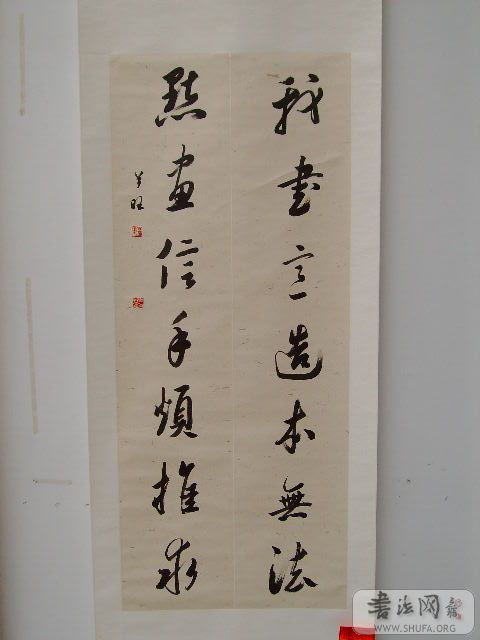 我書意造本無法
點畫信手煩推求
書法网
WWW.SHUFA.ORG